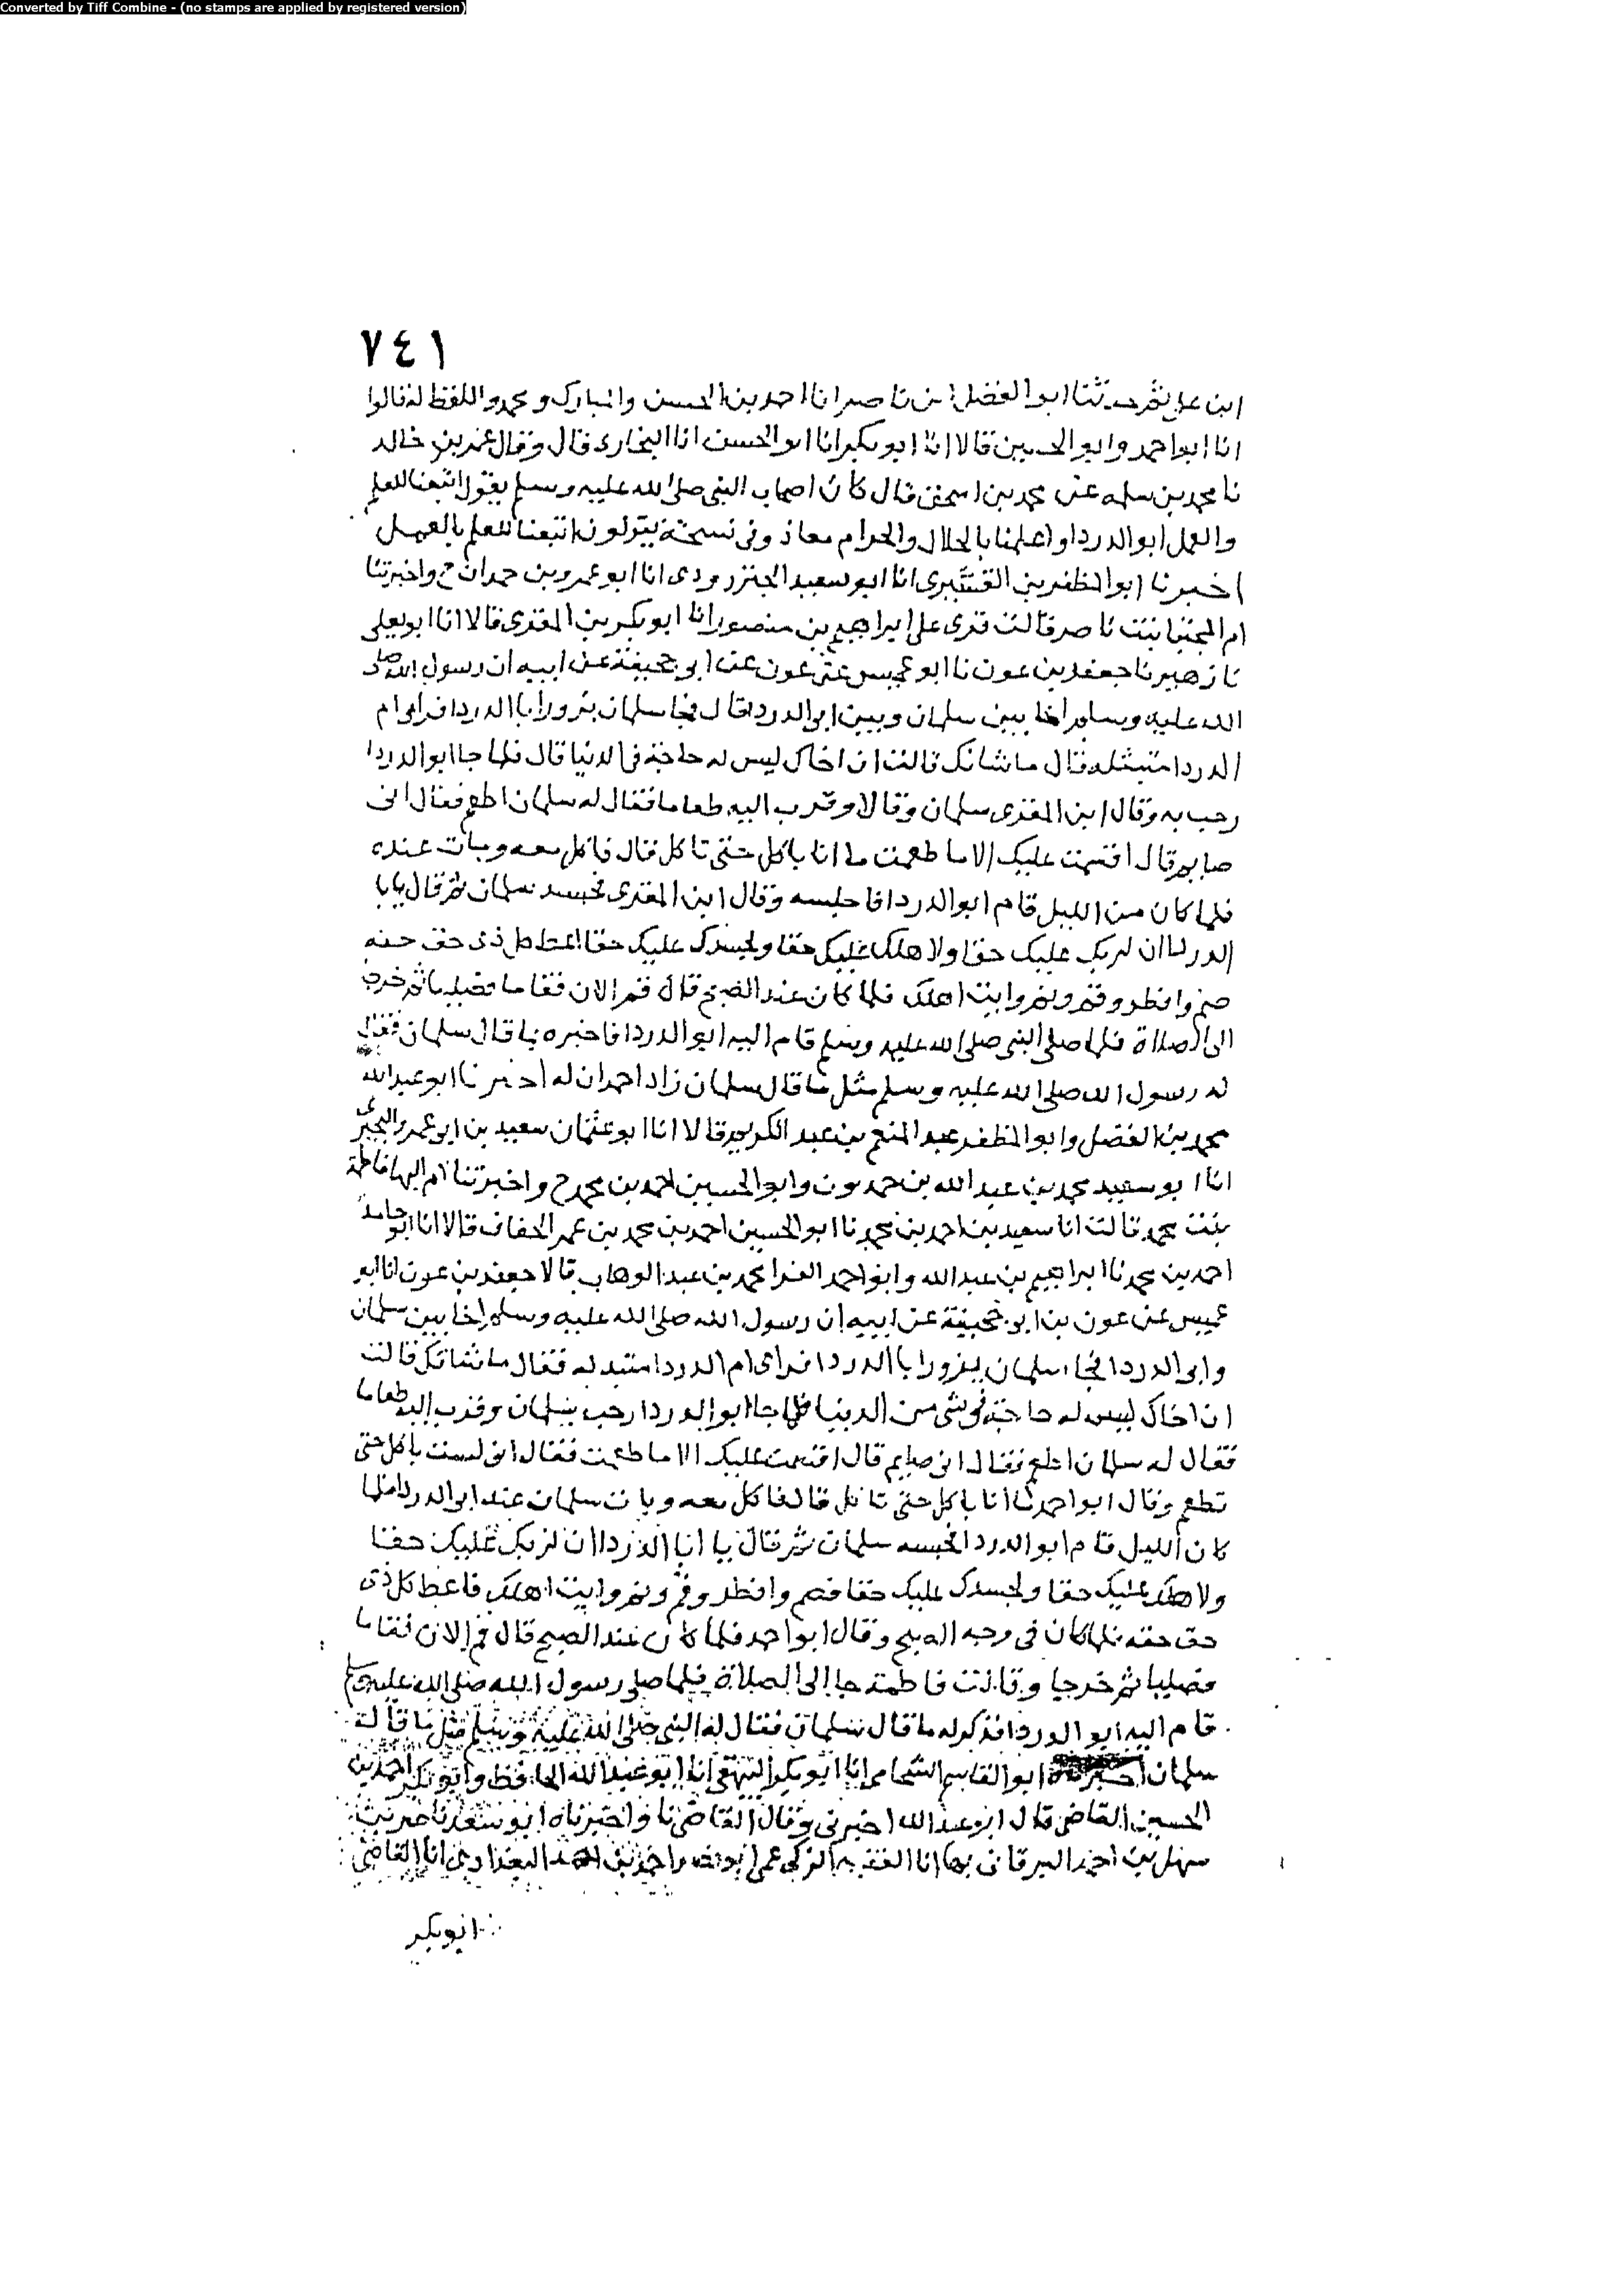 Converted by Tiff Combine - (no stamps are applied by registered version)
٧٤١
ابن علي ثم حدثنا ابو الفضل بن ناصر انا احمد بن الحسن والمبارك ومحمد واللفظ له قالوا
انا ابو احمد وابو الحسين قالا انا ابو بكر انا ابو الحسن انا البخاري قال وقال عمر بن خالد
نا محمد بن سلمه عن محمد بن اسحق قال كان اصحاب النبي صلى الله عليه وسلم يقول اتبعنا للعلم
والعمل ابو الدرداو اعلمنا بالحلال والحرام معاذ وفي نسخة يقولون اتبعنا للعلم بالعمل
اخبرنا ابو المظفر بن القشيري انا ابو سعيد الجنزرودي انا ابو عمرو بن حمدان ح واخبرتنا
ام المجتبا بنت ناصر قالت قرى على ابراهيم بن منصور انا ابو بكر بن المقرى قالا انا ابو يعلى
نا زهير نا جعفر بن عون نا ابو عميس عن عون عن ابو جحيفة عن ابيه ان رسول الله صلى
الله عليه وسلم اخا بين سلمان وبين ابي الدردا قال فجا سلمان يزور ابا الدردا فراى ام
الدردا متبتله فقال ما شانك قالت ان اخاك ليس له حاجة في الدنيا قال فلما جا ابو الدردا
رحب به وقال ابن المقرى سلمان وقالا وقرب اليه طعاما فقال له سلمان اطعم فقال اني
صايم قال اقسمت عليك الا ما طعمت ما انا باكل حتى تاكل قال فاكل معه وبات عنده
فلما كان من الليل قام ابو الدردا فاجلسه وقال ابن المقرى فحبسه سلمان ثم قال يابا
الدردا ان لربك عليك حقا ولاهلك عليك حقا ولجسدك عليك حقا اعط كل ذي حق حقه
صم وافطر وقم ونم وايت اهلك فلما كان عند الصبح قال قم الان فقاما فصليا ثم خرجا
الى الصلاة فلما صلى النبي صلى الله عليه وسلم قام اليه ابو الدردا فاخبره بما قال سلمان فقال
له رسول الله صلى الله عليه وسلم مثل ما قال سلمان زاد احمدان له اخبرنا ابو عبد الله
محمد بن الفضل وابو المظفر عبد المنعم بن عبد الكريم قالا انا ابو عثمان سعيد بن ابي عمرو البحيري
انا ابو سعيد محمد بن عبد الله بن حمدون وابو الحسين احمد بن محمد ح واخبرتنا ام البها فاطمة
بنت محمد قالت انا سعيد بن احمد بن محمد نا ابو الحسين احمد بن محمد بن عمر الخفاف قالا انا ابو حامد
احمد بن محمد نا ابراهيم بن عبد الله وابو احمد الفرا محمد بن عبد الوهاب قالا جعفر بن عون انا ابو
عميس عن عون بن ابو جحيفة عن ابيه ان رسول الله صلى الله عليه وسلم اخا بين سلمان
وابي الدردا فجا سلمان يزور ابا الدردا فراى ام الدردا متبدله فقال ما شانك قالت
ان اخاك ليس له حاجة في شي من الدنيا فلما جا ابو الدردا رحب بسلمان وقرب اليه طعاما
فقال له سلمان اطعم فقال اني صايم قال اقسمت عليك الا ما طعمت فقال اني لست باكل حتى
تطعم وقال ابو احمد ما انا باكل حتى تاكل قال فاكل معه وبات سلمان عند ابي الدردا فلما
كان الليل قام ابو الدردا فحبسه سلمان ثم قال يا ابا الدردا ان لربك عليك حقا
ولاهلك عليك حقا ولجسدك عليك حقا فصم وافطر وقم ونم وايت اهلك فاعط كل ذي
حق حقه فلما كان في وجه الصبح وقال ابو احمد فلما كان عند الصبح قال قم الان فقاما
فصليا ثم خرجا وقالت فاطمة جا الى الصلاة فلما صلى رسول الله صلى الله عليه وسلم
قام اليه ابو الدردا فذكر له ما قال سلمان فقال له النبي صلى الله عليه وسلم مثل ما قال له
سلمان اخبرناه ابو القاسم الشحامي انا ابو بكر البيهقي انا ابو عبد الله الحافظ وابو بكر احمد بن
الحسين القاضي قال ابو عبد الله اخبرني وقال القاضي نا واخبرناه ابو سعد نا
سهل بن احمد البيرقاني بها انا الفقيه الزكي عمي ابو احمد بن احمد البغدادي انا القاضي
ابو بكر